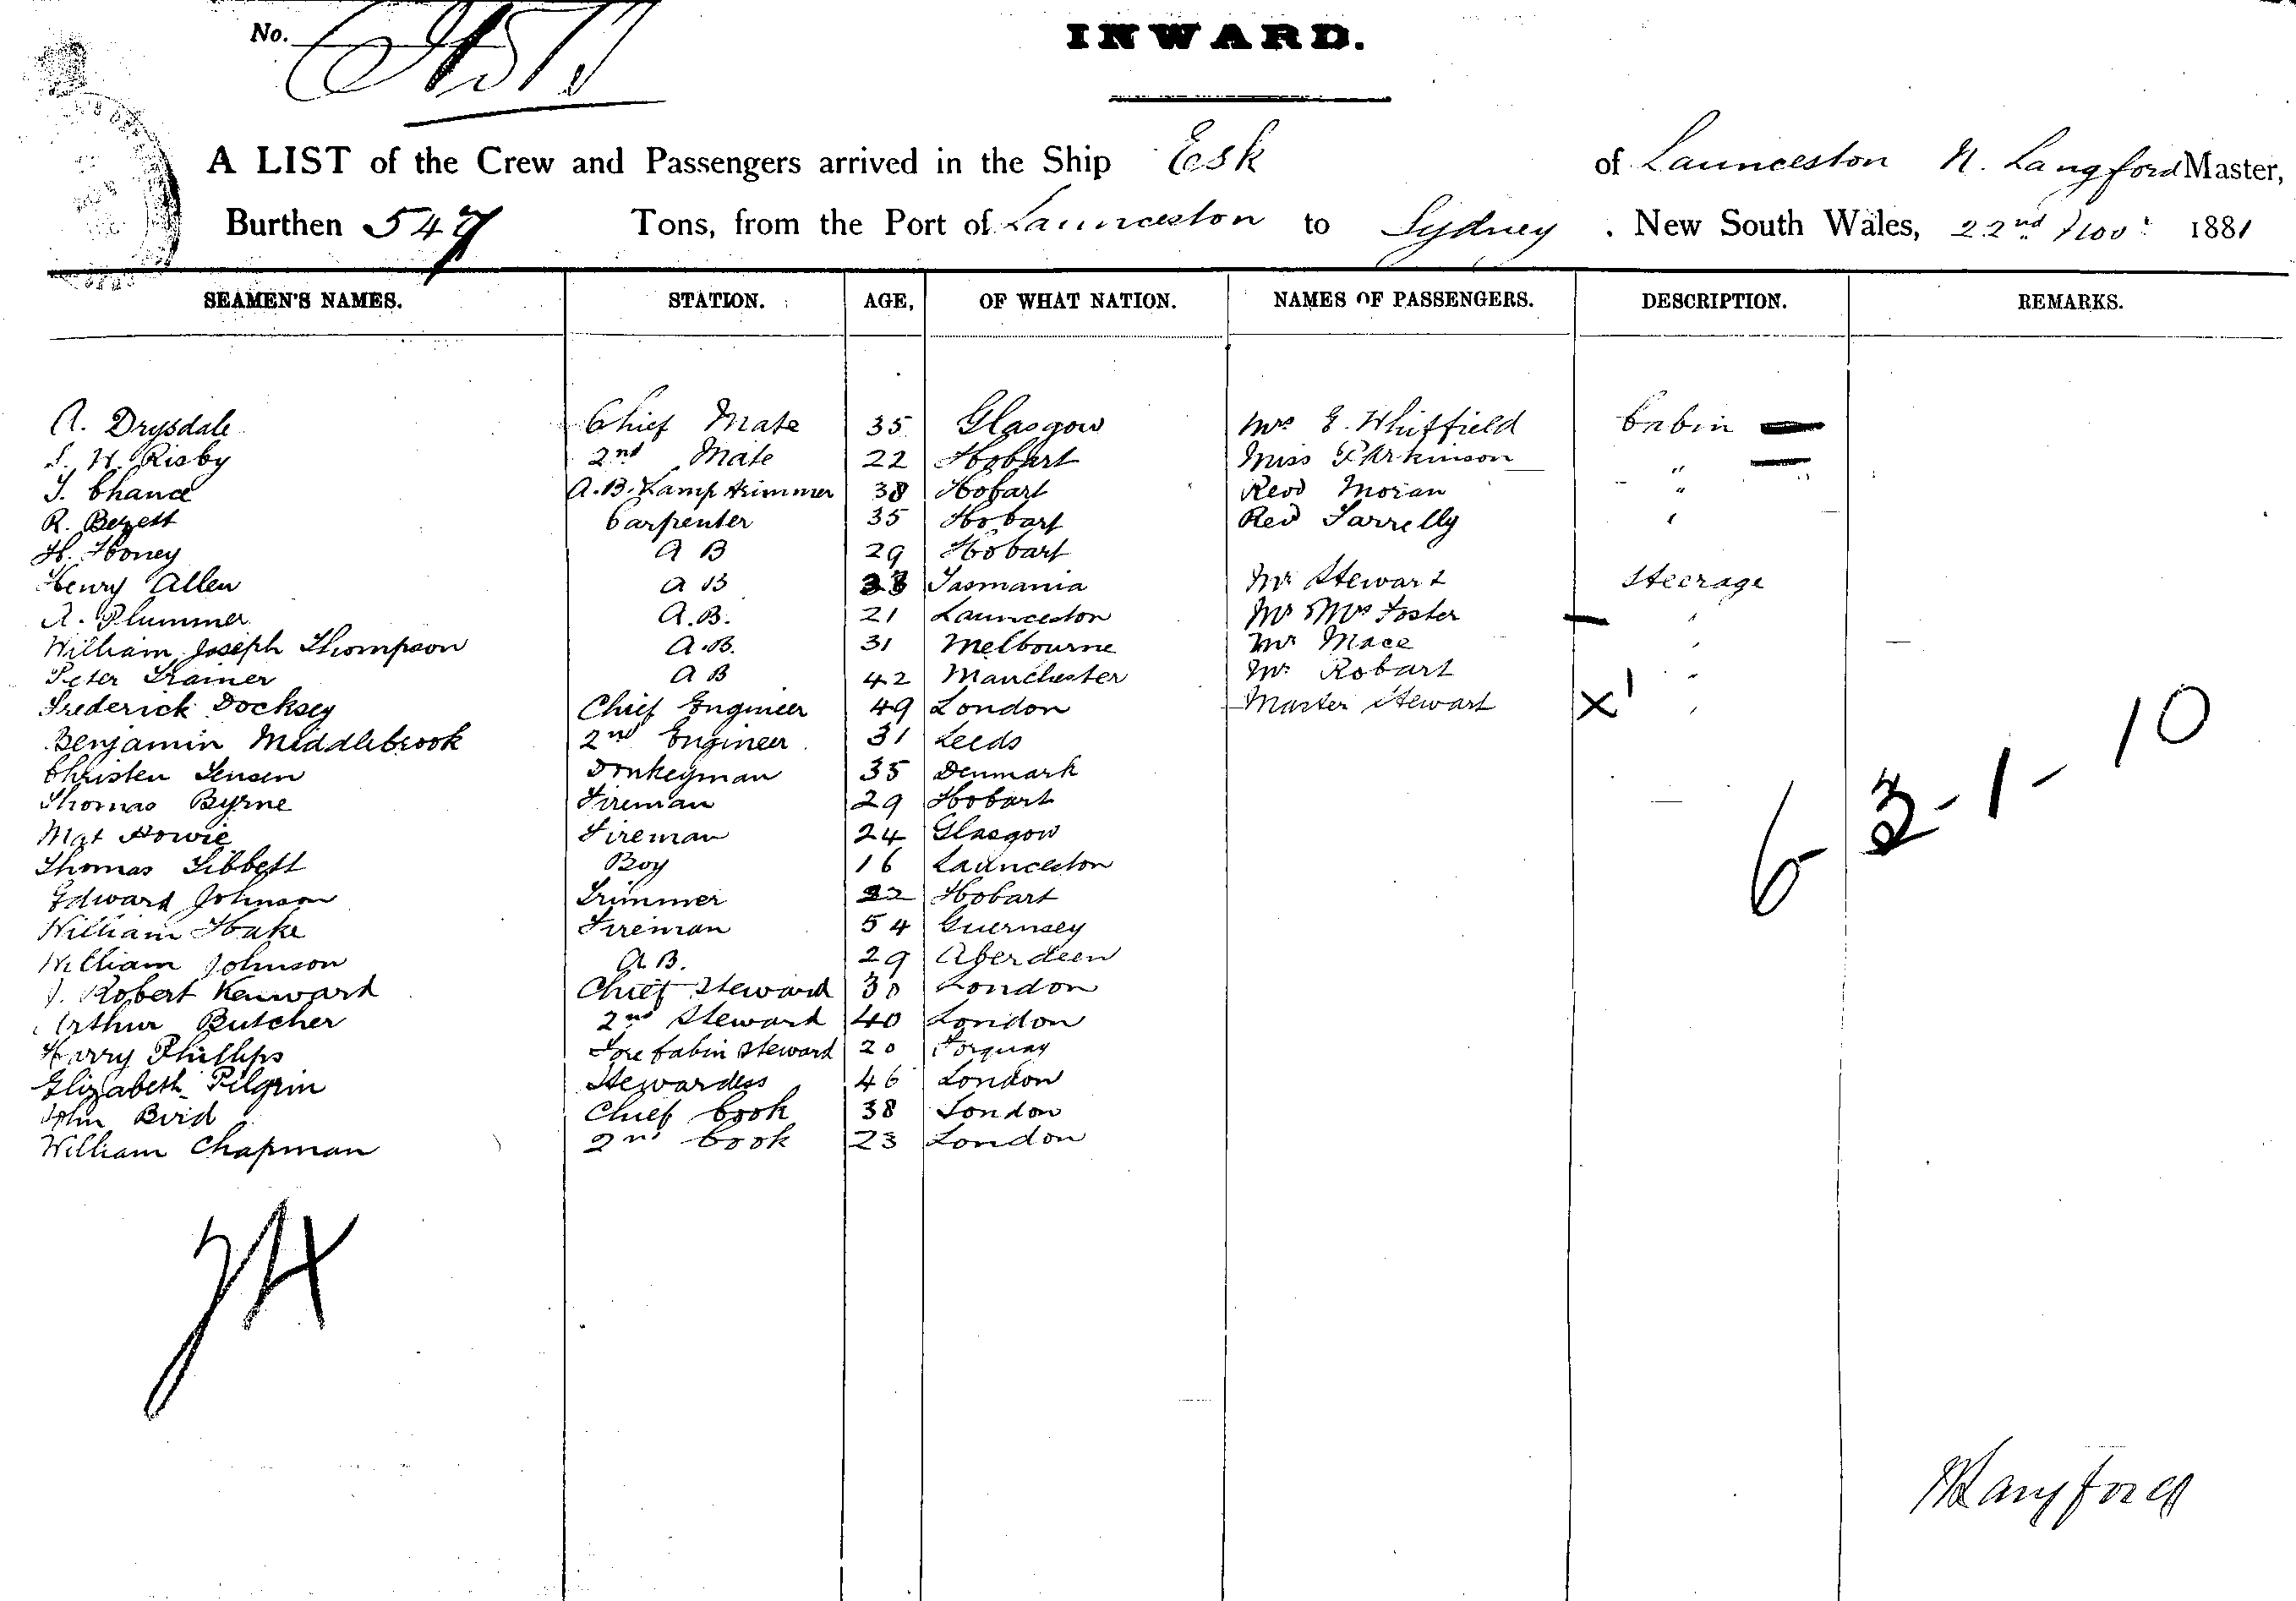 INWARD.
No.
A LIST of the Crew and Passengers arrived in the Ship Esk of Launceston N. Langford Master,
Burthen 547 Tons, from the Port of Launceston to Sydney . New South Wales, 22nd Nov: 1881
SEAMEN'S NAMES. STATION. AGE, OF WHAT NATION. NAMES OF PASSENGERS. DESCRIPTION. REMARKS.
A. Drysdale Chief Mate 35 Glasgow Mrs E. Whitfield Cabin
S. W. Risby 2nd Mate 22 Hobart Miss Parkinson "
T. Chance A.B. Lamp trimmer 38 Hobart Revd Moran "
R. Bezett Carpenter 35 Hobart Rev Farrelly "
H. Honey A B 29 Hobart
Henry Allen A B Tasmania Mr Stewart Steerage
A. Plummer A.B. 21 Launceston Mr Mrs Foster "
William Joseph Thompson A.B. 31 Melbourne Mr Mace "
Peter Trainer A B 42 Manchester Mr Robart "
Frederick Docksey Chief Engineer 49 London Master Stewart X 1 "
Benjamin Middlebrook 2nd Engineer 31 Leeds
Christen Jensen Donkeyman 35 Denmark
Thomas Byrne Fireman 29 Hobart
Mat Howie Fireman 24 Glasgow
Thomas Tibbett Boy 16 Launceston
Edward Johnson Trimmer 22 Hobart
William Hake Fireman 54 Guernsey
William Johnson A.B. 29 Aberdeen
J. Robert Kenward Chief Steward 30 London
Arthur Butcher 2nd Steward 40 London
Harry Phillips Fore Cabin Steward 20 Torquay
Elizabeth Pilgrin Stewardess 46 London
John Boid Chief Cook 38 London
William Chapman 2nd Cook 23 London
6 3 - 1 - 10
24
N Langford